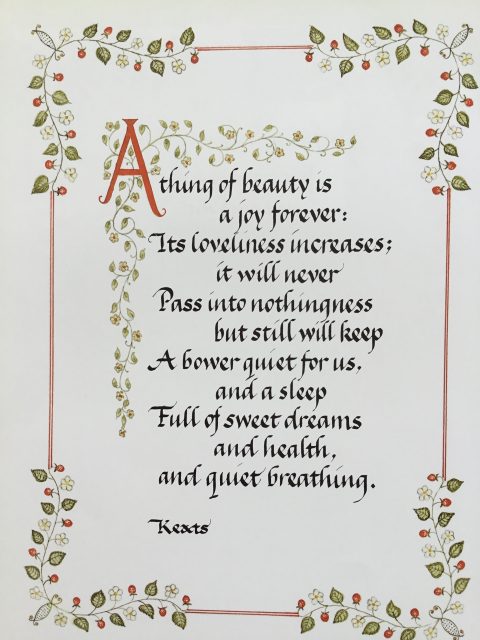 A thing of beauty is
a joy forever:
Its loveliness increases;
it will never
Pass into nothingness
but still will keep
A bower quiet for us,
and a sleep
Full of sweet dreams
and health,
and quiet breathing.
Keats